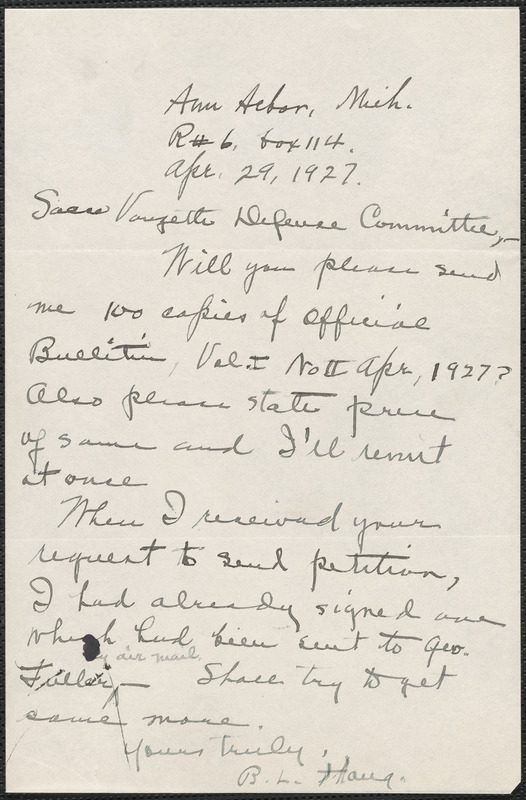 Ann Arbor, Mich.
R#6, box 114.
Apr. 29, 1927.
Sacco Vanzetti Defense Committee,—
Will you please send
me 100 copies of Official
Bulletin, Vol. I No II Apr, 1927?
Also please state price
of same and I'll remit
at once
When I received your
request to send petition,
I had already signed one
which had been sent to Gov.
by air mail.
Fuller,— Shall try to get
some more.
Yours truly,
B. L.